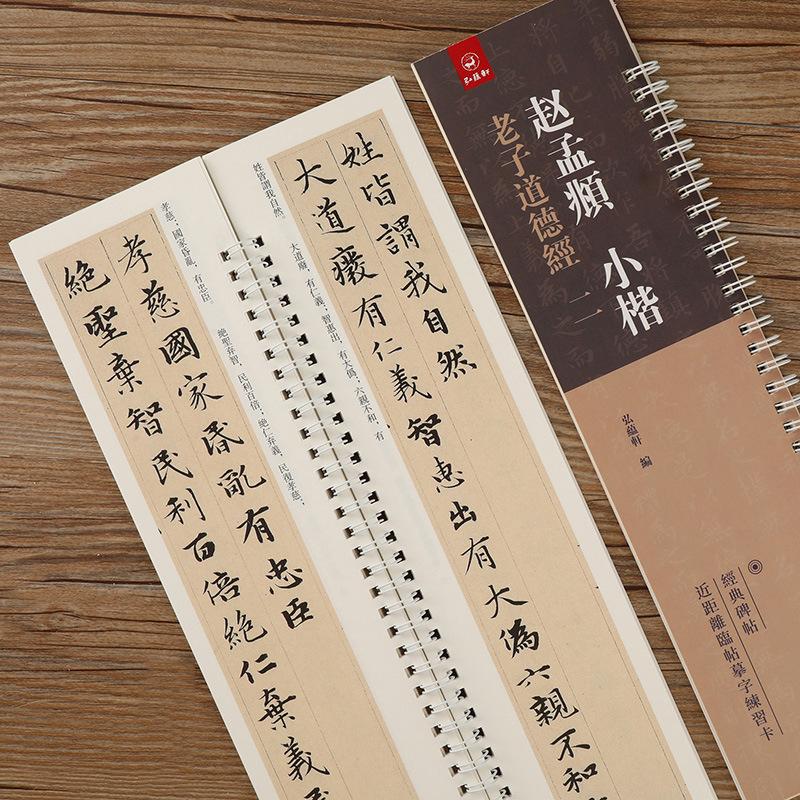 弘蕴軒
赵孟頫 小楷
老子道德經 二
弘蘊軒 編
經典碑帖
近距離臨帖摹字練習卡
姓皆謂我自然
大道癈有仁義智惠出有大偽六親不和
姓皆謂我自然。
大道廢，有仁義；智惠出，有大偽；六親不和，有
孝慈國家昏亂有忠臣
絕聖棄智民利百倍絕仁棄義民
孝慈；國家昏亂，有忠臣。
絕聖弃智，民利百倍；絕仁弃義，民復孝慈；